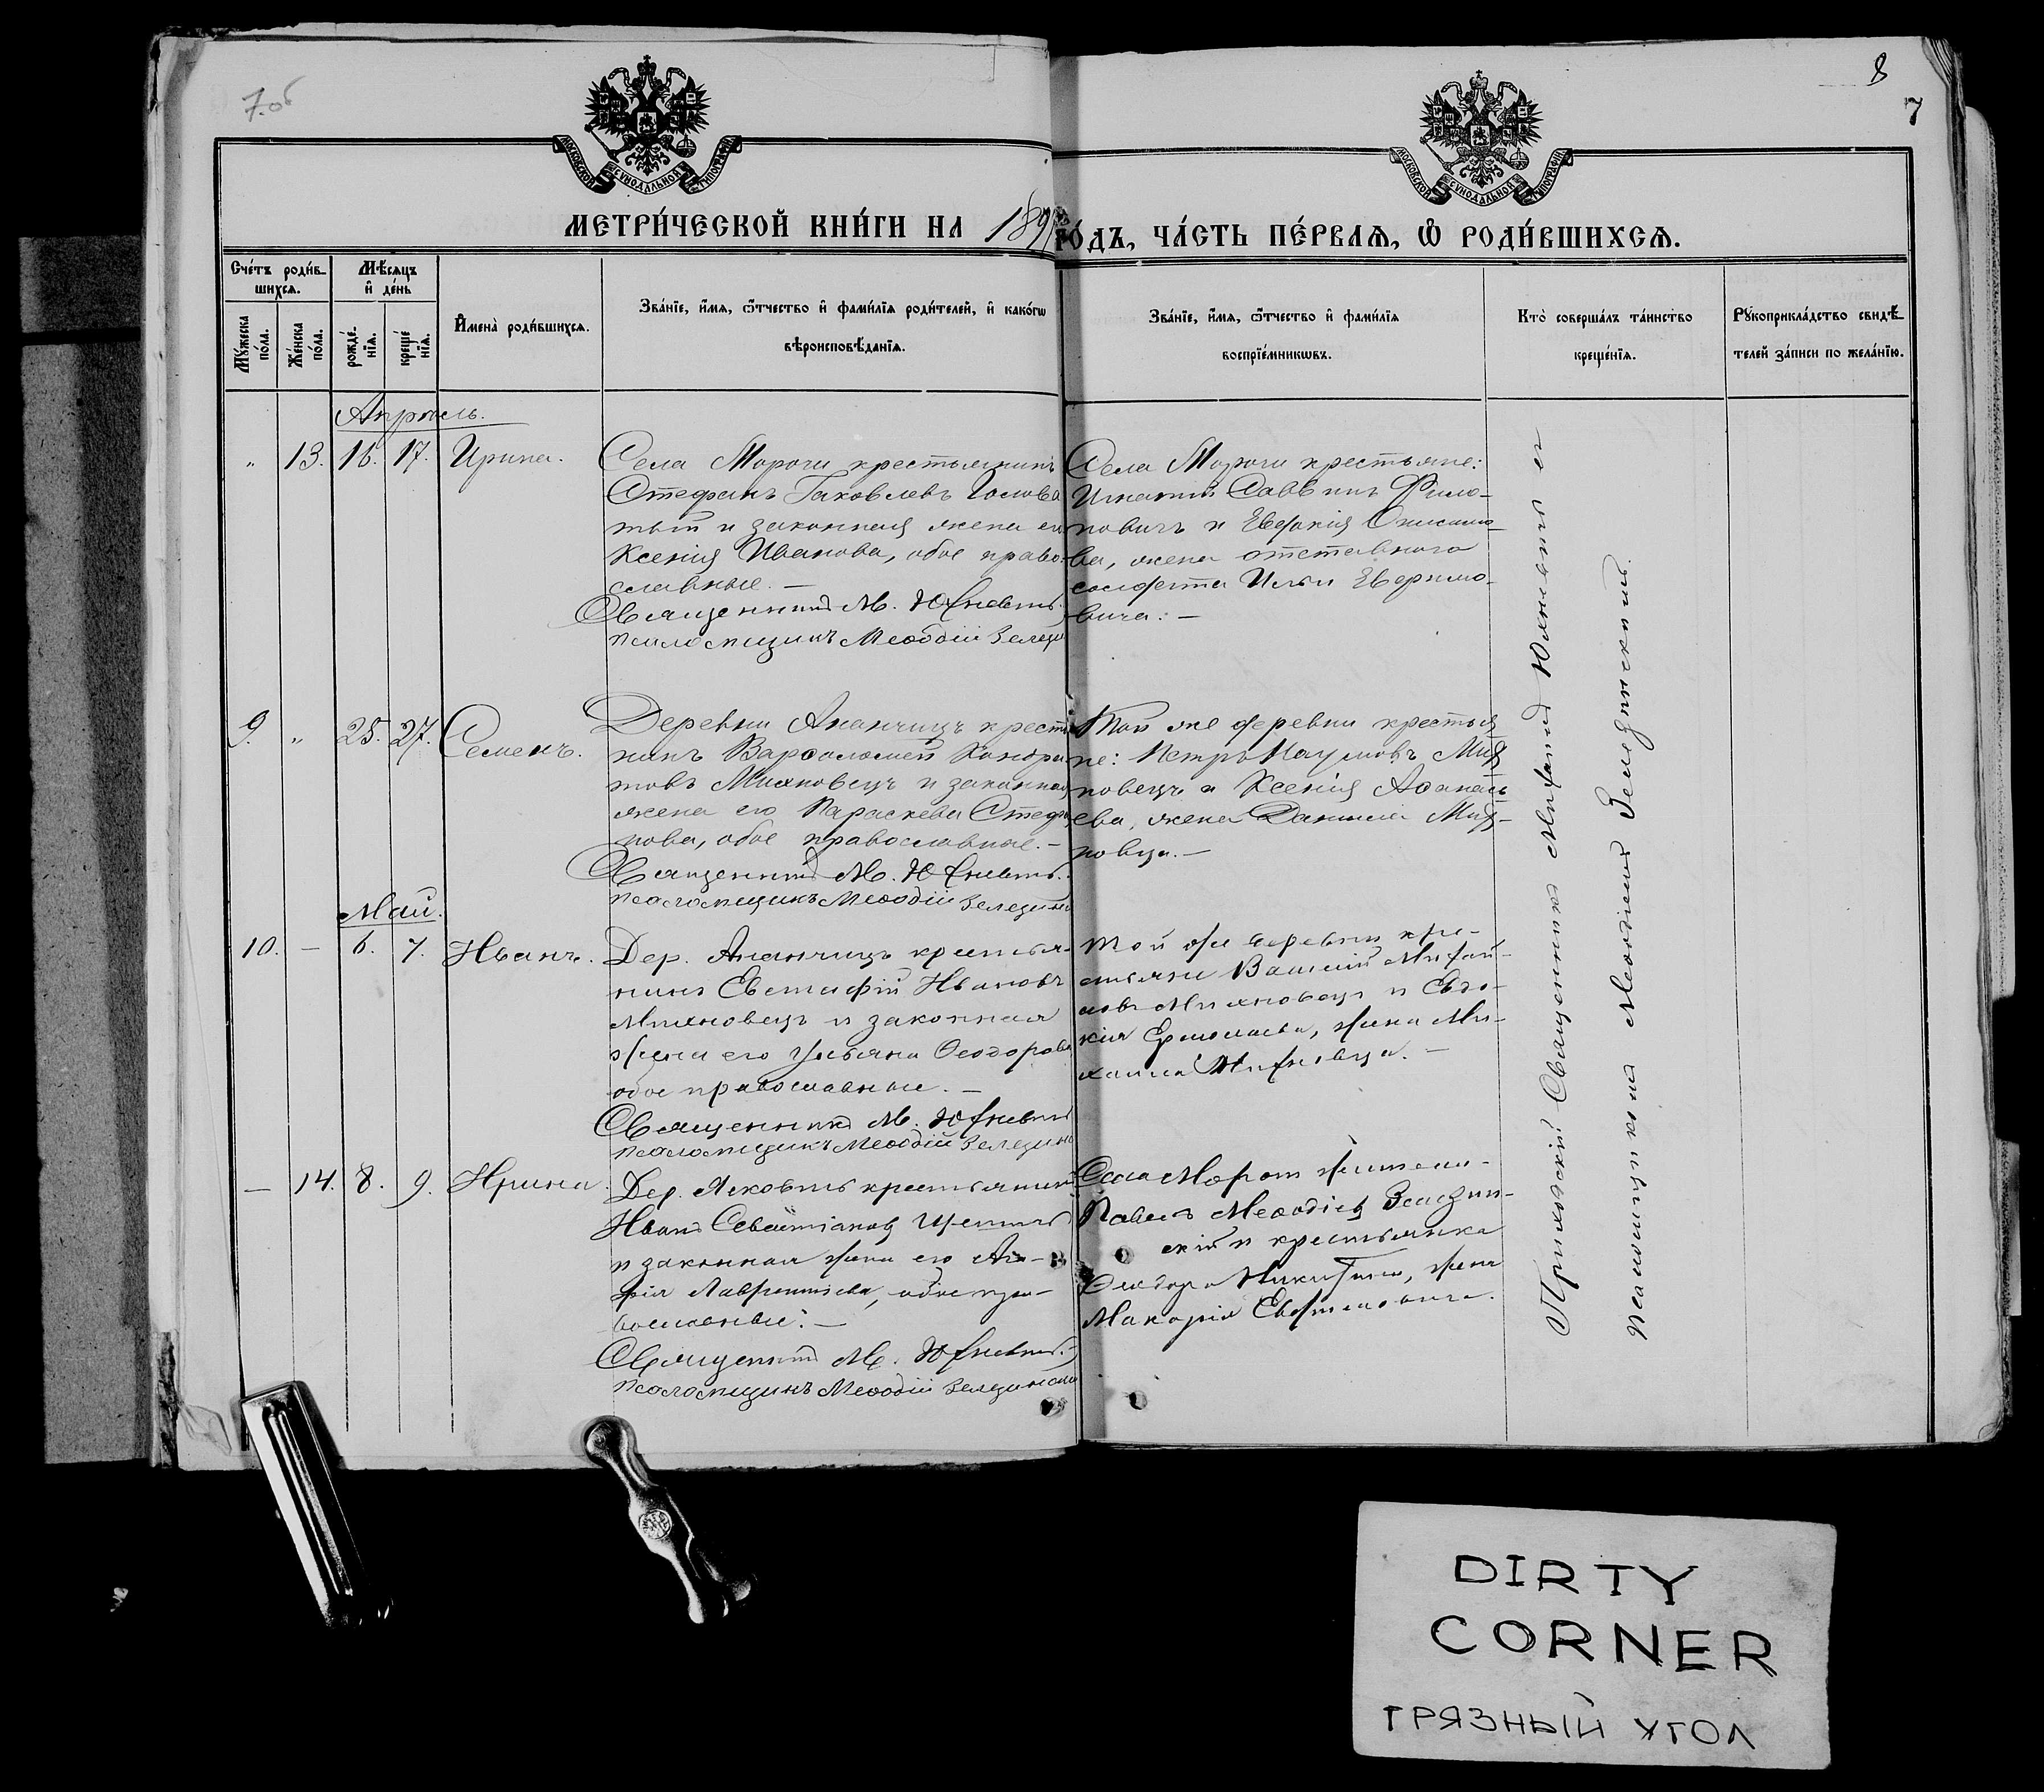 7 об
8
7
МОСКОВСКОЙ СѴНОДАЛЬНОЙ ТИПОГРАФІИ
МОСКОВСКОЙ СѴНОДАЛЬНОЙ ТИПОГРАФІИ
МЕТРИ́ЧЕСКОЙ КНИ́ГИ НА 189
ГО́ДЪ, ЧА́СТЬ ПЕ́РВАѦ, Ѡ҆ РОДИ́ВШИХСѦ.
Сче́тъ роди́в-
шихсѧ.
Мꙋжеска по́ла.
Же́нска по́ла.
Мѣ́сѧцъ и҆ де́нь
рожде́нїѧ.
креще́нїѧ.
И҆мена̀ роди́вшихсѧ.
Зва́нїе, и҆́мѧ, ѻ҆́тчество и҆ фами́лїѧ роди́телей, и҆ како́гѡ
вѣроисповѣ́данїѧ.
Зва́нїе, и҆́мѧ, ѻ҆́тчество и҆ фами́лїѧ
воспрїе́мникѡвъ.
Кто̀ соверша́лъ та́инство
креще́нїѧ.
Рꙋкоприкла́дство свидѣ́-
телей за́писи по жела́нїю.
Апрѣль.
" 13. 16. 17. Ирина.
Села Морочи крестьянинъ
Стефанъ Іаковлевъ Голова
тый и законная жена его
Ксенія Иванова, обое право-
славные. —
Священникъ М.
Псаломщикъ Меѳодій
Села Морочи крестьяне:
Игнатій Саввинъ Фили-
повичъ и Евдокія
ва, жена отставного
солдата Ильи
вича: —
9. " 25. 27. Семенъ.
Деревни Ананчицъ крестья
нинъ Варѳоломей Кондра
товъ Михновецъ и законная
жена его Параскева Стефа
нова, обое православные. —
Священникъ М.
Псаломщикъ Меѳодій
Той же деревни крестья
не: Петръ Наумовъ Мих
новецъ и Ксенія Аѳанась
ева, жена Даніила Мих-
новца. —
Май.
10. — 6. 7. Иванъ.
Дер. Ананчицъ крестья-
нинъ Евстафій Ивановъ
Михновецъ и законная
жена его Ульяна Ѳеодорова
обое православные. —
Священникъ М.
Псаломщикъ Меѳодій
Той же деревни кре-
стьяне Василій Михай-
ловъ Михновецъ и Евдо-
кія Ермолаева, жена Ми-
хаила Михновца. —
— 14. 8. 9. Ирина.
Дер. Яковичъ крестьянинъ
Иванъ Севастіановъ
и законная жена его Ага-
фія Лаврентіева, обое пра-
вославные: —
Священникъ М.
Псаломщикъ Меѳодій
Села Морочи
Павелъ Меѳодіевъ
скій и крестьянка
Ѳеодора Никитина, жена
Макарія
Приходскій Священникъ Михаилъ
Псаломщикомъ Меѳодіемъ
DIRTY
CORNER
ГРЯЗНЫЙ УГОЛ